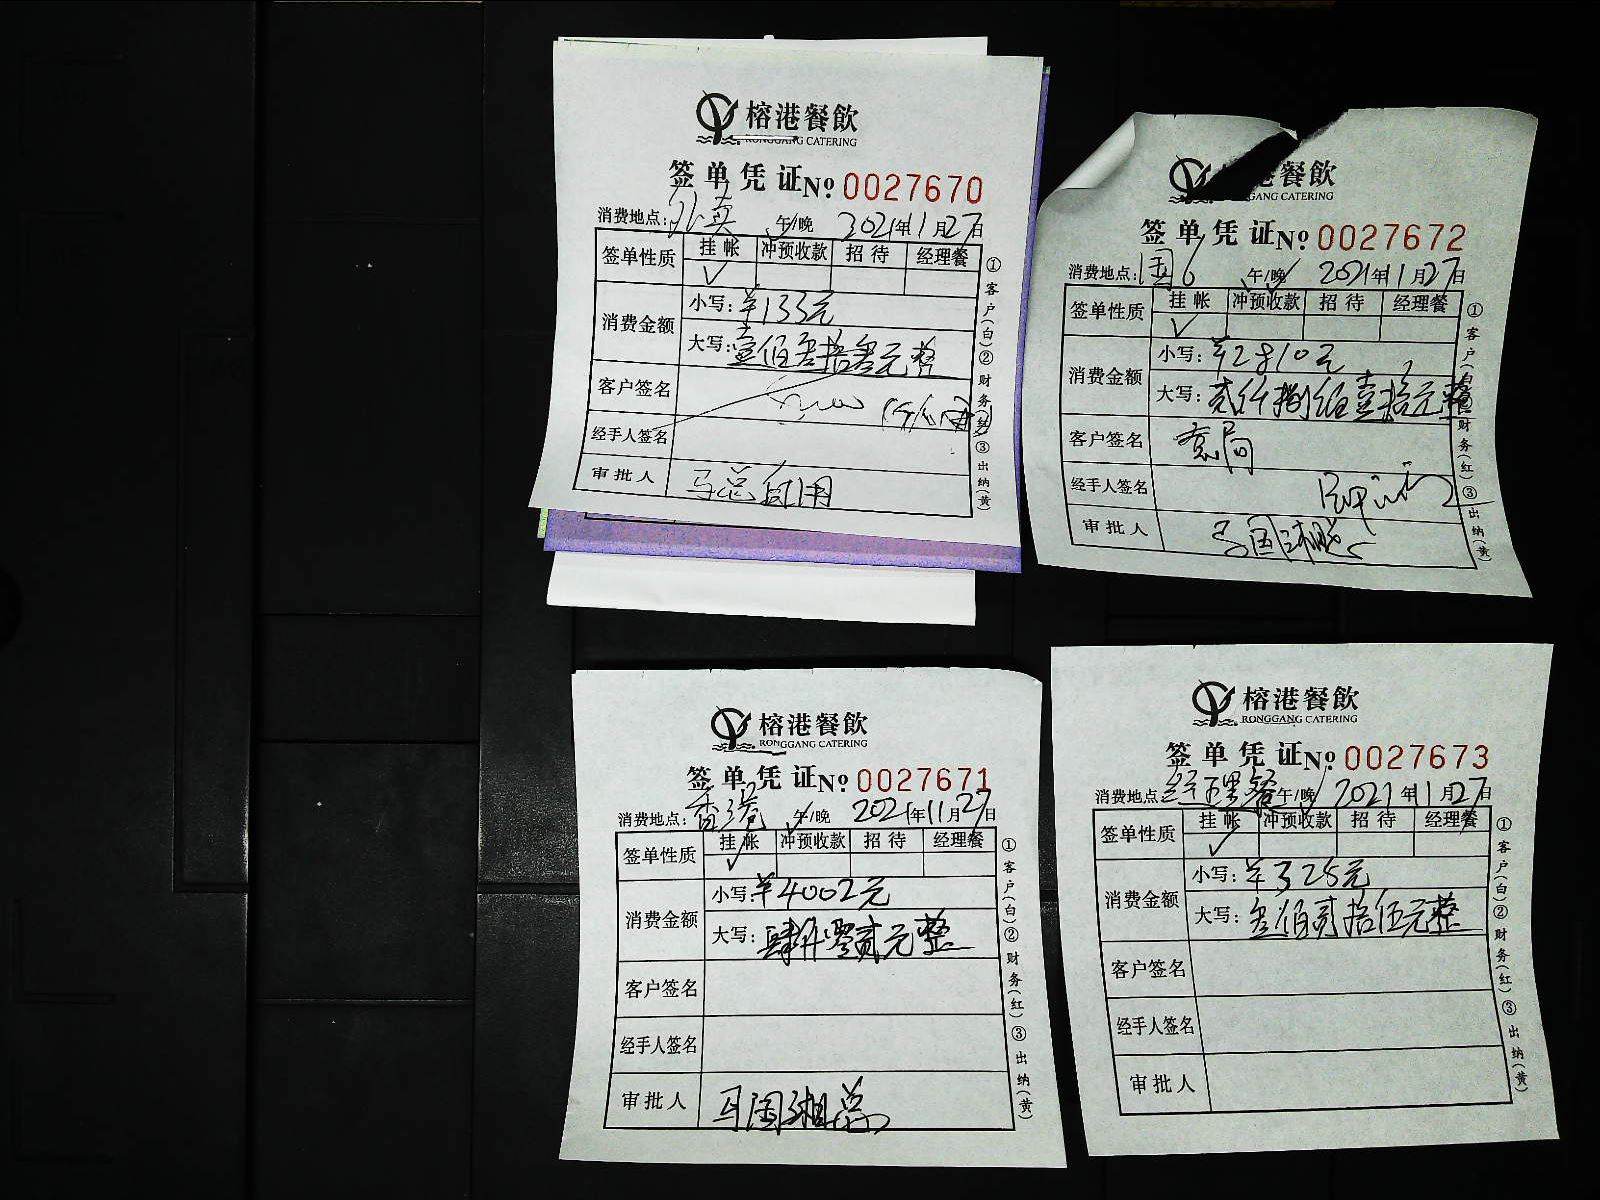 榕港餐飲
RONGGANG CATERING
签单凭证№ 0027670
消费地点:外卖 午/晚 2021年1月27日
签单性质 挂帐 冲预收款 招待 经理餐
✓
消费金额 小写:¥133元
大写:壹佰叁拾叁元整
客户签名
经手人签名
审批人 马总
①客户(白)②财务(红)③出纳(黄)
榕港餐飲
GANG CATERING
签单凭证№ 0027672
消费地点:国6 午/晚 2021年1月27日
签单性质 挂帐 冲预收款 招待 经理餐
✓
消费金额 小写:¥2810元
大写:贰仟捌佰壹拾元整
客户签名 袁局
经手人签名
审批人 马国湘
①客户(白)②财务(红)③出纳(黄)
榕港餐飲
RONGGANG CATERING
签单凭证№ 0027671
消费地点:香港 午/晚 2021年11月27日
签单性质 挂帐 冲预收款 招待 经理餐
✓
消费金额 小写:¥4002元
大写:肆仟零贰元整
客户签名
经手人签名
审批人 马国湘总
①客户(白)②财务(红)③出纳(黄)
榕港餐飲
RONGGANG CATERING
签单凭证№ 0027673
消费地点:经理餐 午/晚 2021年1月27日
签单性质 挂帐 冲预收款 招待 经理餐
✓
消费金额 小写:¥325元
大写:叁佰贰拾伍元整
客户签名
经手人签名
审批人
①客户(白)②财务(红)③出纳(黄)